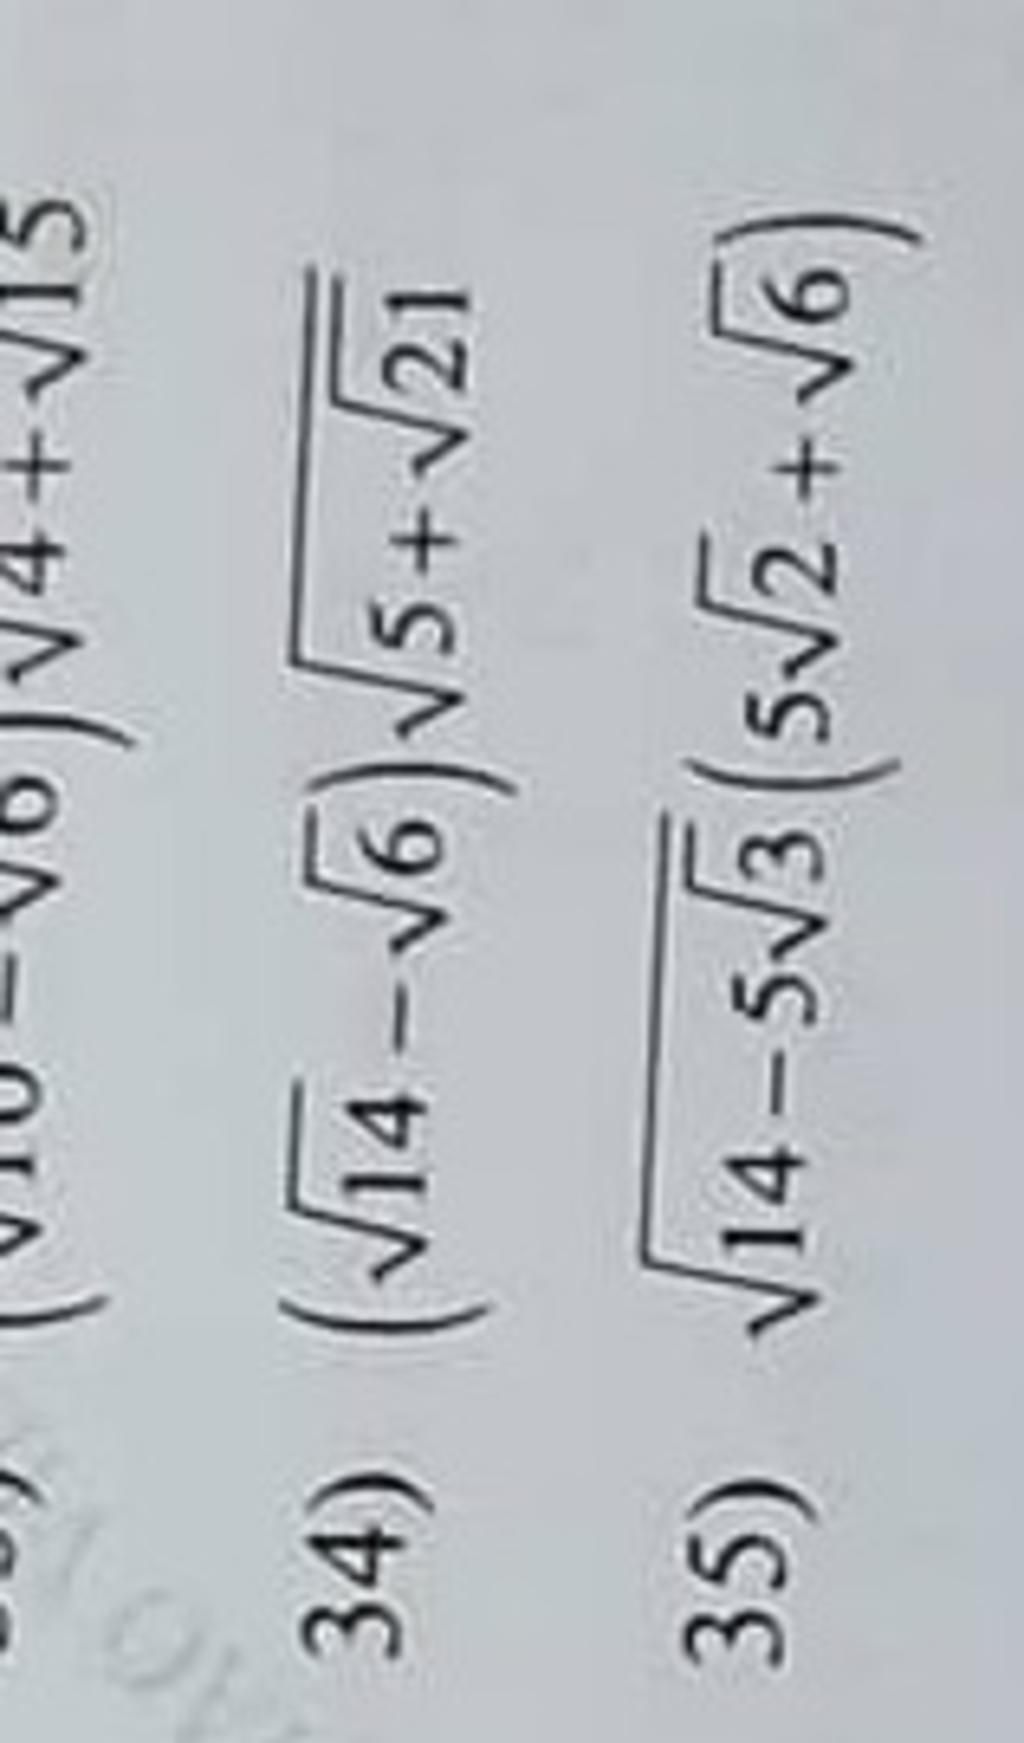 (√10 − √6)√4 + √15
34) (√14 − √6)√(5 + √21)
35) √(14 − 5√3)(5√2 + √6)